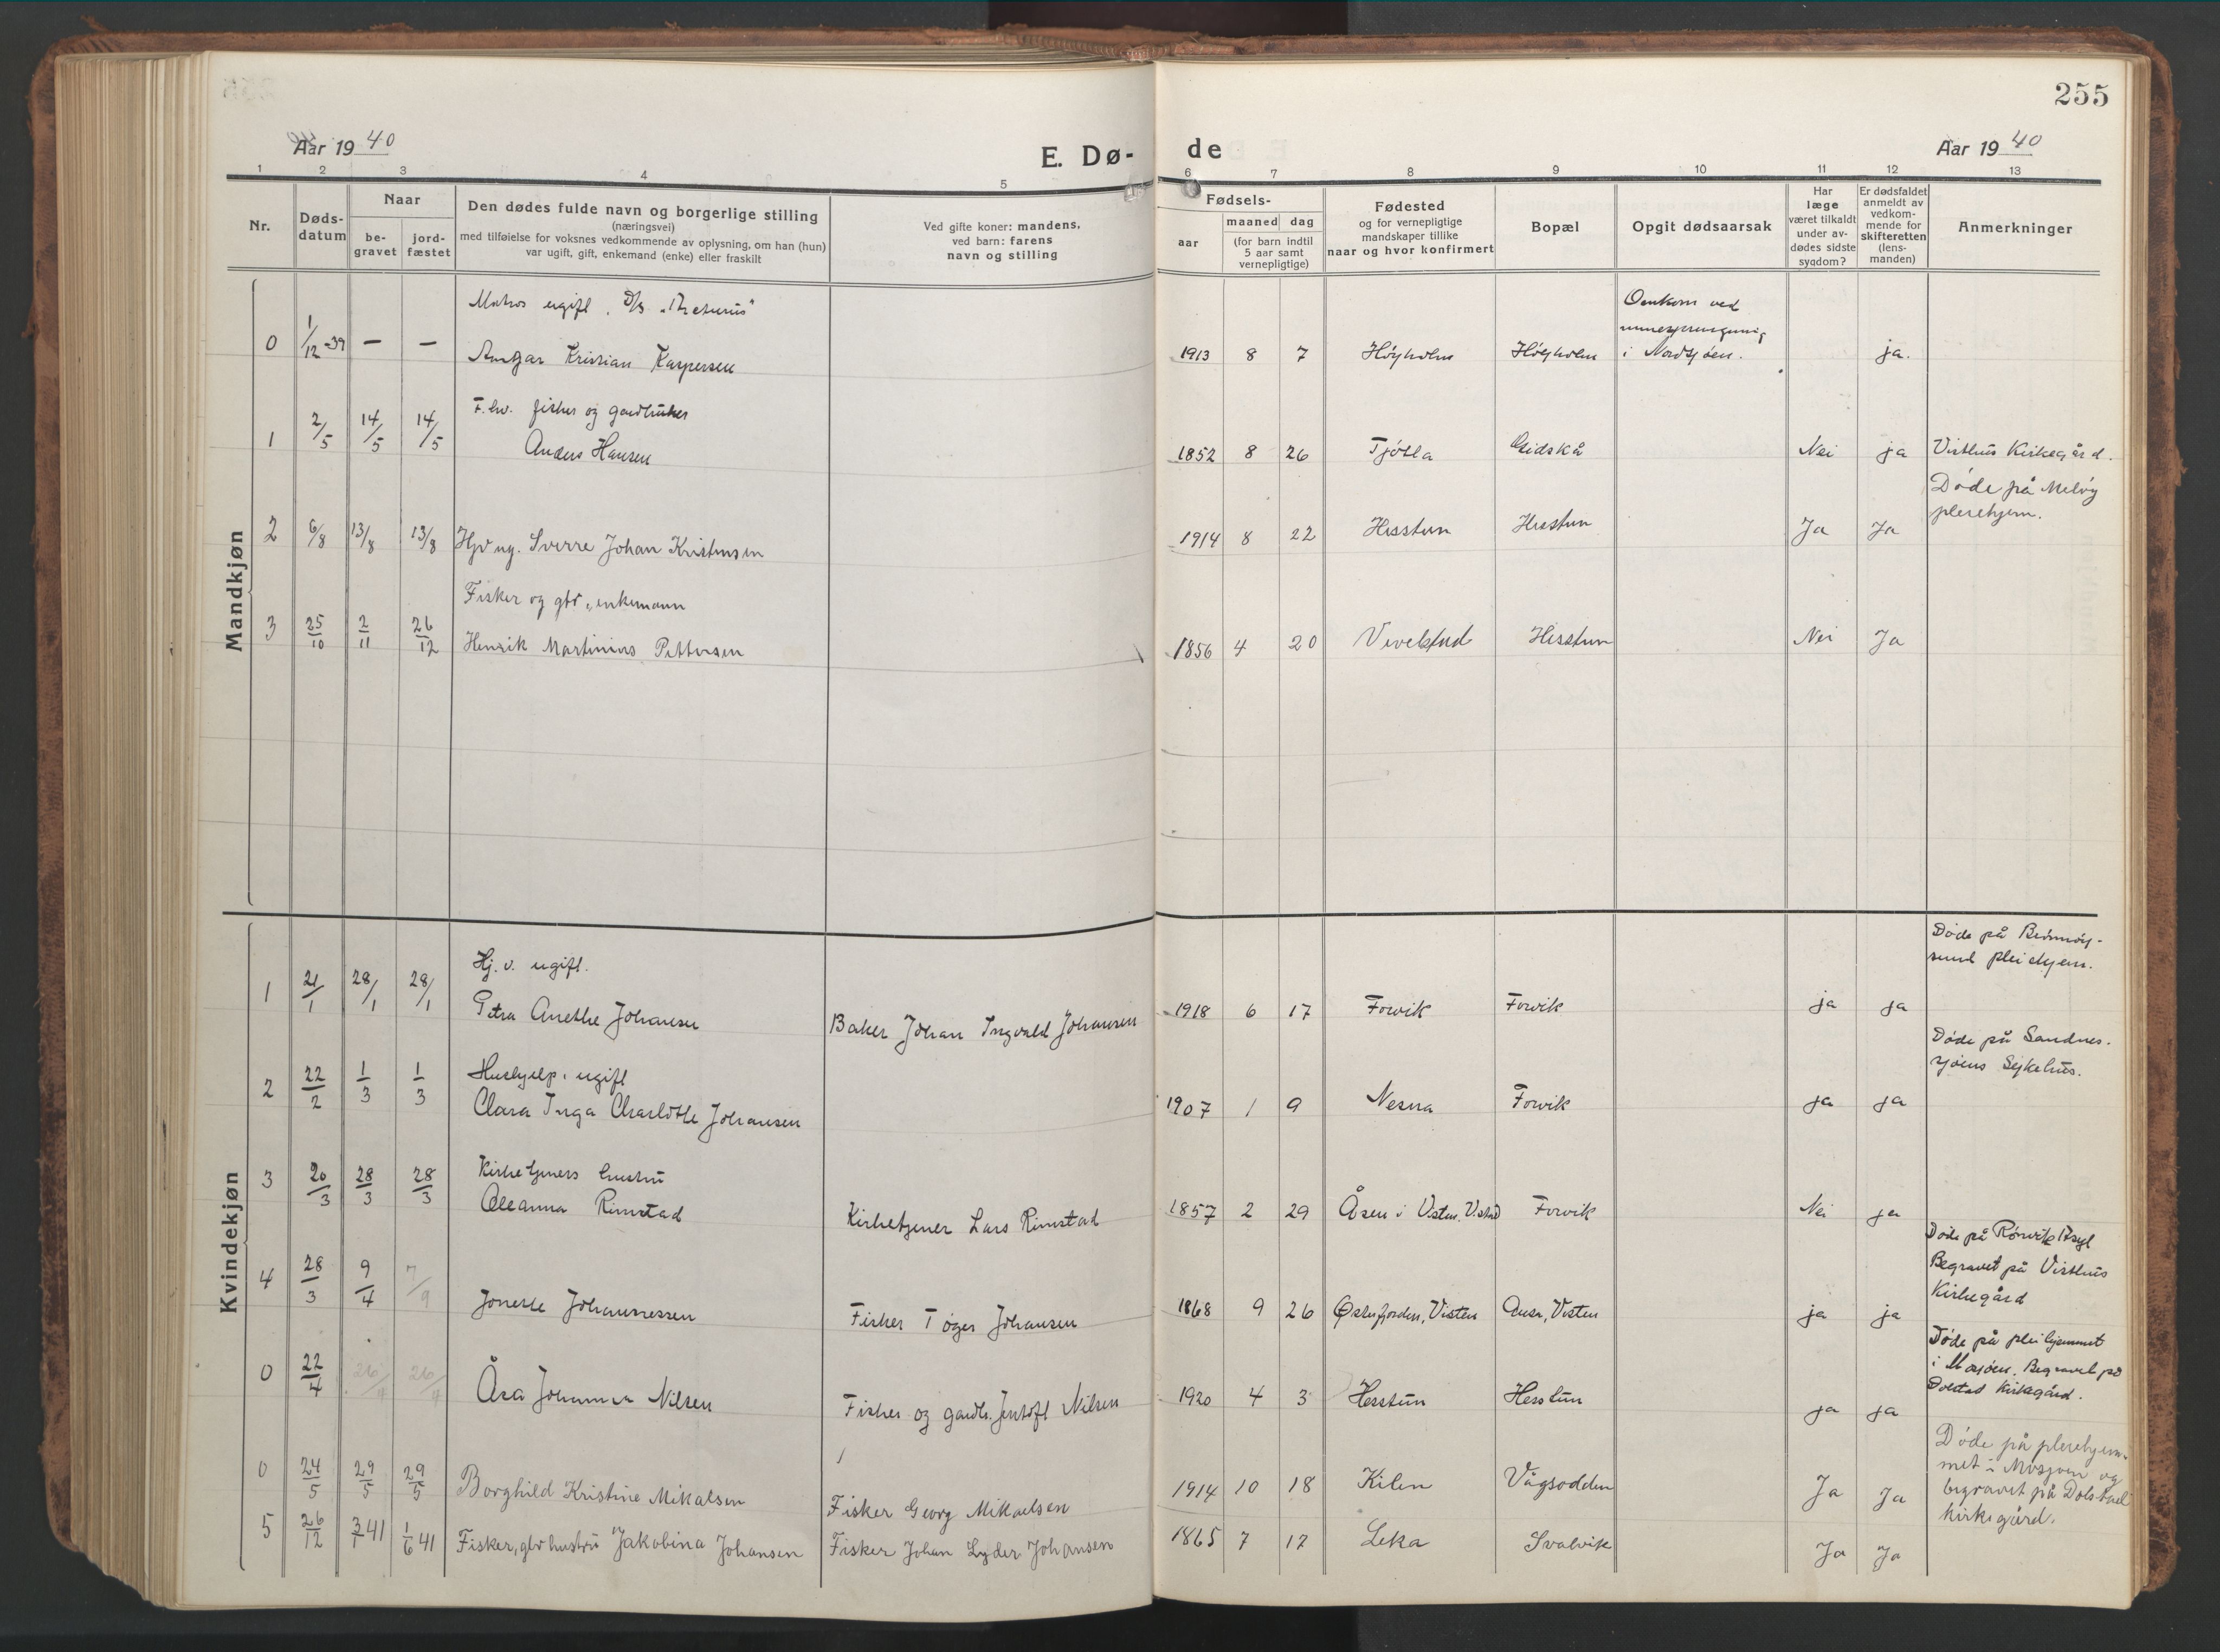 255
Aar 19 40
E. Dø-
de
Aar 19 40
1 2 3 4 5 6 7 8 9 10 11 12 13
Nr.
Døds-
datum
Naar
be-
gravet
jord-
fæstet
Den dødes fulde navn og borgerlige stilling
(næringsvei)
med tilføielse for voksnes vedkommende av oplysning, om han (hun)
var ugift, gift, enkemand (enke) eller fraskilt
Ved gifte koner: mandens,
ved barn: farens
navn og stilling
Fødsels-
aar
maaned dag
(for barn indtil
5 aar samt
vernepligtige)
Fødested
og for vernepligtige
mandskaper tillike
naar og hvor konfirmert
Bopæl
Opgit dødsaarsak
Har
læge
været tilkaldt
under av-
dødes sidste
sygdom?
Er dødsfaldet
anmeldt av
vedkom-
mende for
skifteretten
(lens-
manden)
Anmerkninger
Mandkjøn
Matros ugift. D/S
Omkom ved
minesprengning
0 1/12-39 — — Ansgar Kristian Kaspersen 1913 8 7 Høyholm Høyholm i Nordsjøen. ja.
F.hv. fisker og gardbruker
1 2/5 14/5 14/5 Anders Hansen 1852 8 26 Tjøtta Gidskå Nei ja Visthus Kirkegård.
Døde på Meløy
pleiehjem.
2 6/8 13/8 13/8 Hjv ug. Sverre Johan Kristensen 1914 8 22 Hesstun Hesstun Ja Ja
Fisker og gbr., enkemann
3 25/10 2/11 26/12 Henrik Martinius Pettersen 1856 4 20 Vevelstad Hesstun Nei Ja
Kvindekjøn
Døde på Brønnøy-
sund pleiehjem.
Hj. v. ugift.
1 21/1 28/1 28/1 Petra Anethe Johansen Baker Johan Ingvald Johansen 1918 6 17 Forvik Forvik ja ja
Døde på Sandnes-
sjøens Sykehus.
Hushjelp. ugift
2 22/2 1/3 1/3 Clara Inga Charlotte Johansen 1907 1 9 Nesna Forvik ja ja
Kirketjeners hustru
3 20/3 28/3 28/3 Oleanna Rimstad Kirketjener Lars Rimstad 1857 2 29 Åsen i Visten. Forvik Nei ja
Døde på Rønvik Asyl
Begravet på Visthus
Kirkegård
4 28/3 9/4 7/9 Johannessen Fisker Johansen 1868 9 26 Østerfjorden, Visten Visten ja ja
Døde på pleihjemmet
i Mosjøen. Begravet på
Dolstad Kirkegård.
0 22/4 26/4 26/4 Åsa Johanna Nilsen Fisker og gardb. Jentoft Nilsen 1920 4 3 Hesstun Hesstun ja ja
Døde på pleiehjem-
met i Mosjøen og
begravet på Dolstad
kirkegård.
0 24/5 29/5 29/5 Borghild Kristine Mikalsen Fisker Georg Mikaelsen 1914 10 18 Kilen Vågsodden Ja Ja
5 26/12 3/7 41 1/6 41 Fisker, gbr hustru Jakobina Johansen Fisker Johan Lyder Johansen 1865 7 17 Leka Svalvik Ja Ja